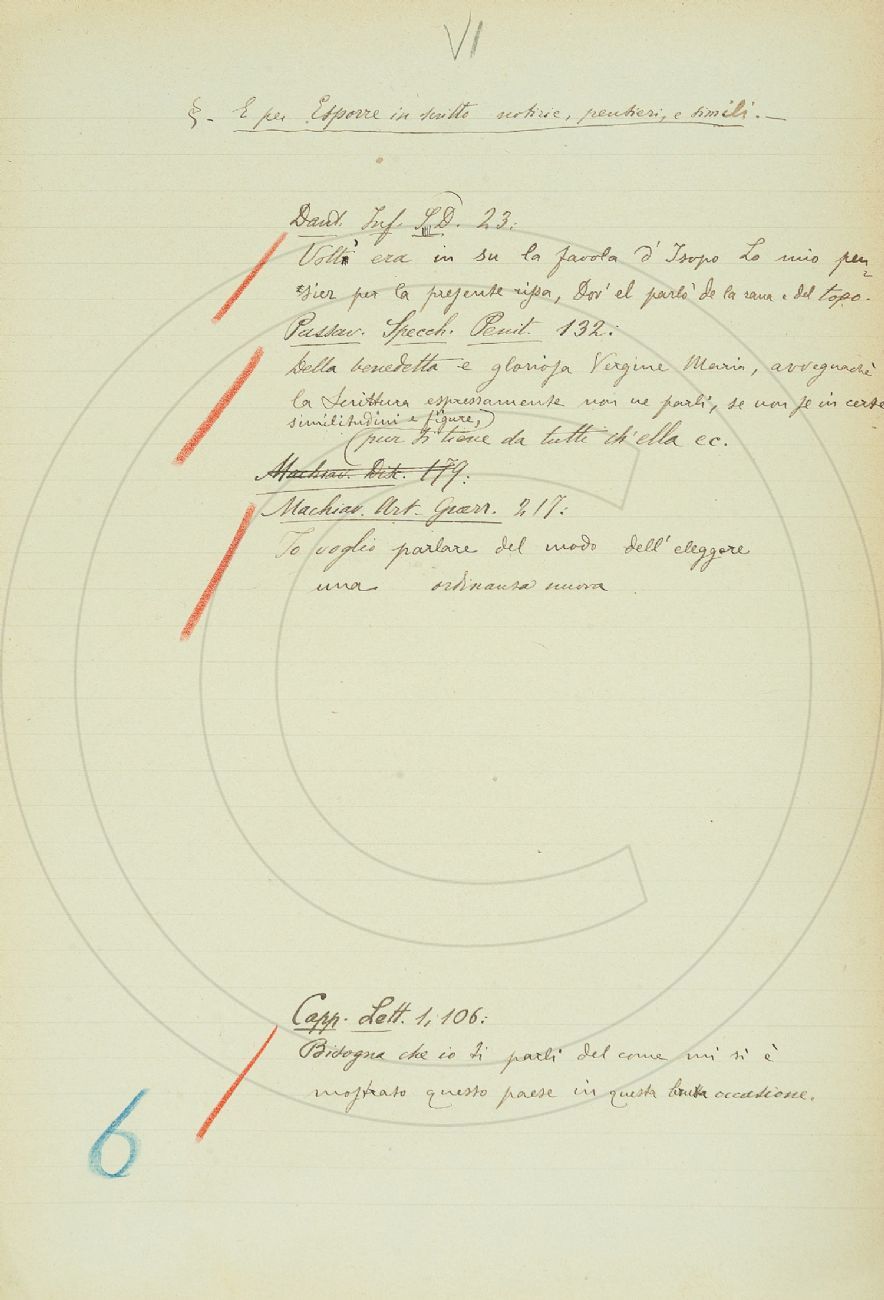 VI
§ - E per Esporre in scritto notizie, pensieri, e simili. -
Dant. Inf. 23:
Volt' era in su la favola d'Isopo Lo mio pen=
sier per la presente rissa, Dov' el parlò de la rana e del topo.
Passav. Specch. Penit. 132:
Della benedetta e gloriosa Vergine Maria, avvegnachè
la Scrittura espressamente non ne parli, se non se in certe
similitudini e figure,
pur si tiene da tutti ch'ella ec.
Machiav. Disc. 179:
Machiav. Art. Guerr. 217:
Io voglio parlare del modo dell'eleggere
una ordinanza nuova
Capp. Lett. 1, 106:
Bisogna che io ti parli del come mi si è
mostrato questo paese in questa brutta occasione.
6